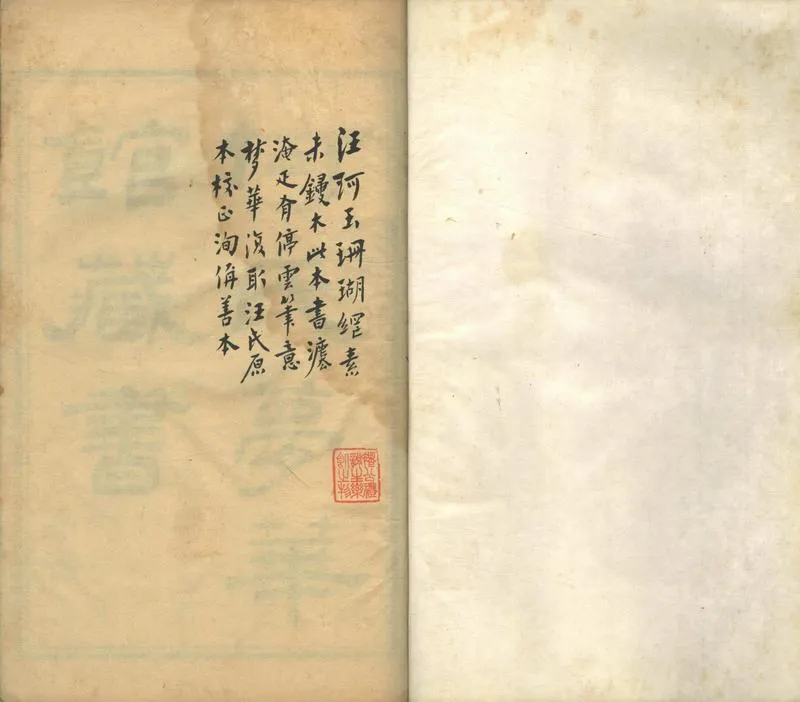 汪珂玉珊瑚網素
未鋟木此本書瀟
淹疋有停雲筆意
梦華復取汪氏原
本校正洵俑善本
夢華
館藏書